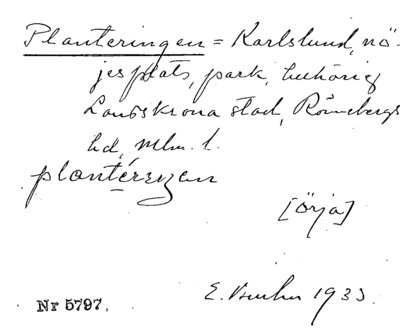 Planteringen = Karlslund, nö-
jesplats, park, tillhörig
Landskrona stad, Rönnebergs
hd, Mlm. l.
plantéreŋen
[Örja]
E. 1933
Nr 5797.